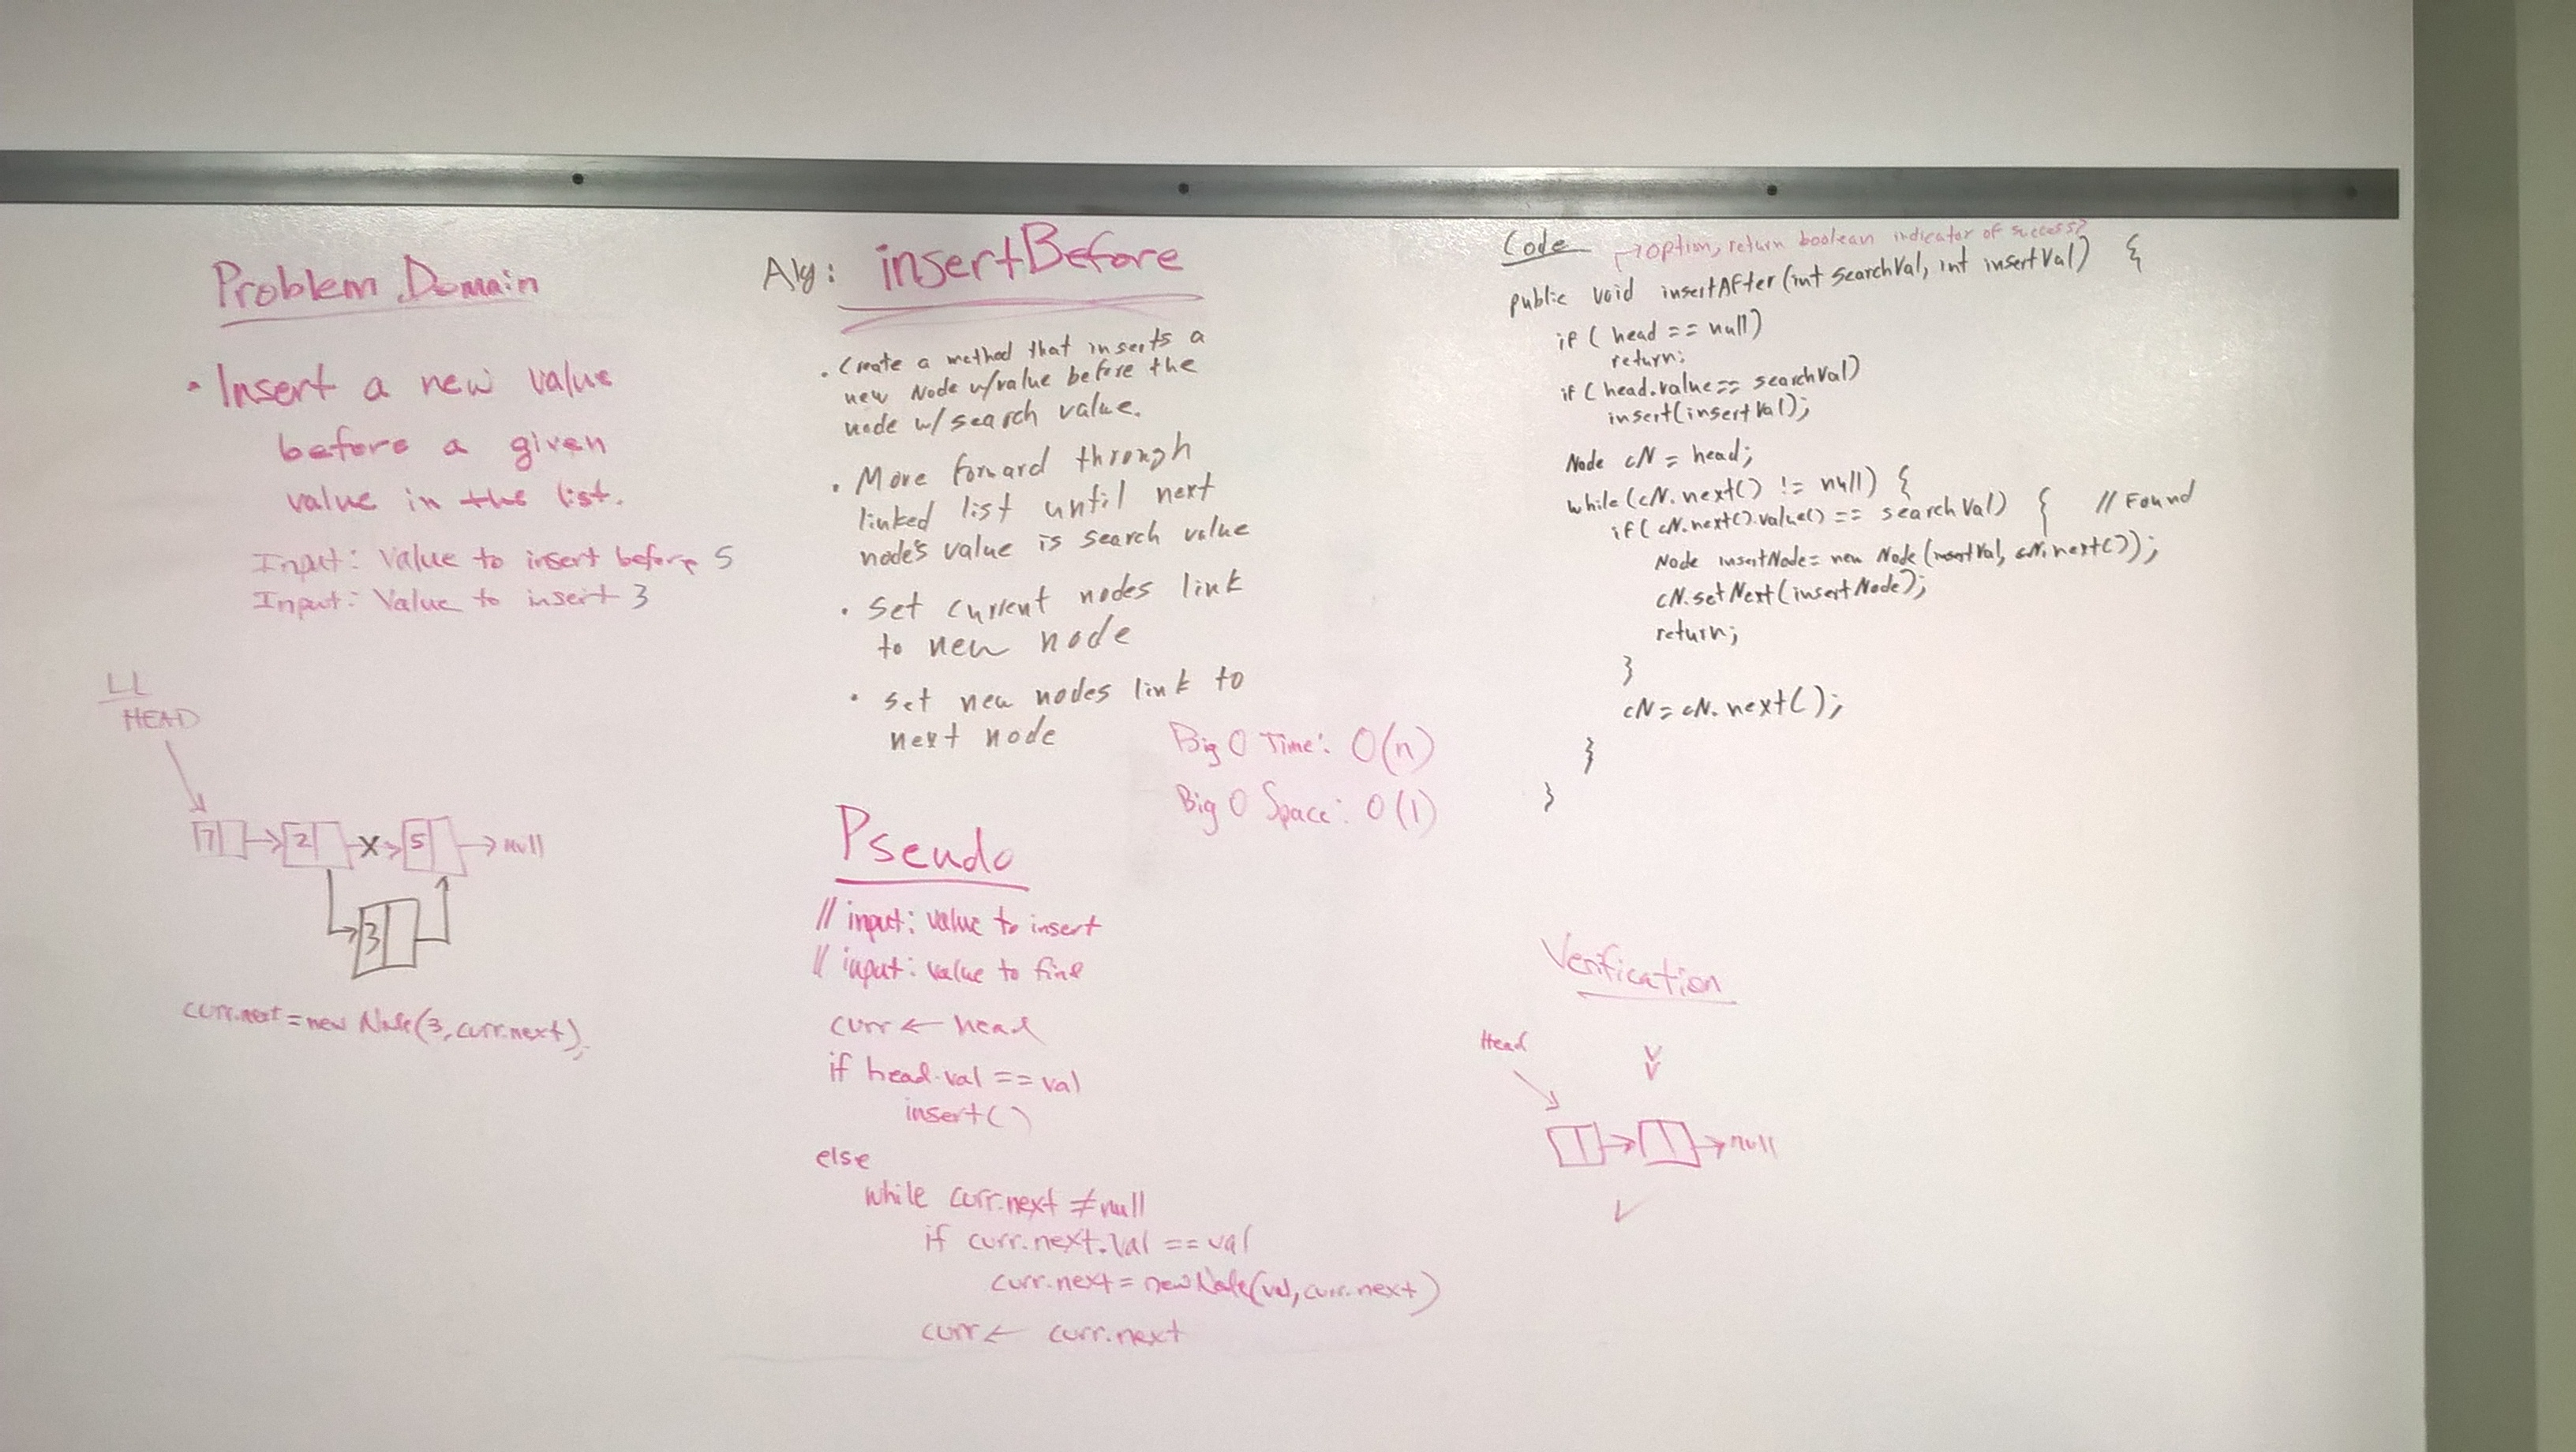 Problem Domain
• Insert a new value
before a given
value in the list.
Input: Value to insert before 5
Input: Value to insert 3
LL
HEAD
7 → 2 -x> 5 → null
3
curr.next = new Node(3, curr.next);
Alg: insertBefore
• Create a method that inserts a
new Node w/value before the
node w/ search value.
• Move forward through
linked list until next
node's value is search value
• Set current nodes link
to new node
• set new nodes link to
next node
Big O Time: O(n)
Big O Space: O(1)
Pseudo
// input: value to insert
// input: value to find
curr ← head
if head.val == val
insert()
else
while curr.next ≠ null
if curr.next.val == val
curr.next = new Node(val, curr.next)
curr ← curr.next
Code
→ option, return boolean indicator of success?
public void insertAfter(int searchVal, int insertVal) {
if ( head == null)
return;
if ( head.value == searchVal)
insert(insertVal);
Node cN = head;
while (cN.next() != null) {
if( cN.next().value() == searchVal) { // Found
Node insertNode = new Node (insertVal, cN.next());
cN.setNext(insertNode);
return;
}
cN = cN.next();
}
}
Verification
Head
→ null